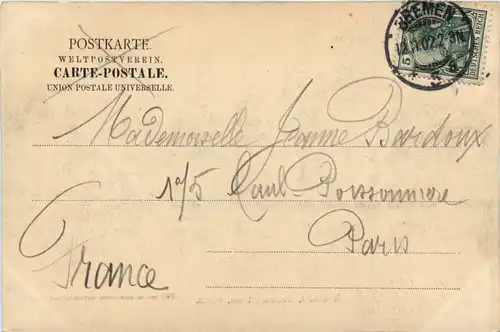 POSTKARTE.
WELTPOSTVEREIN.
CARTE-POSTALE.
UNION POSTALE UNIVERSELLE.
BREMEN
DEUTSCHES REICH
5
Mademoiselle Jeanne Bardoux
Poissonniere
Paris
France